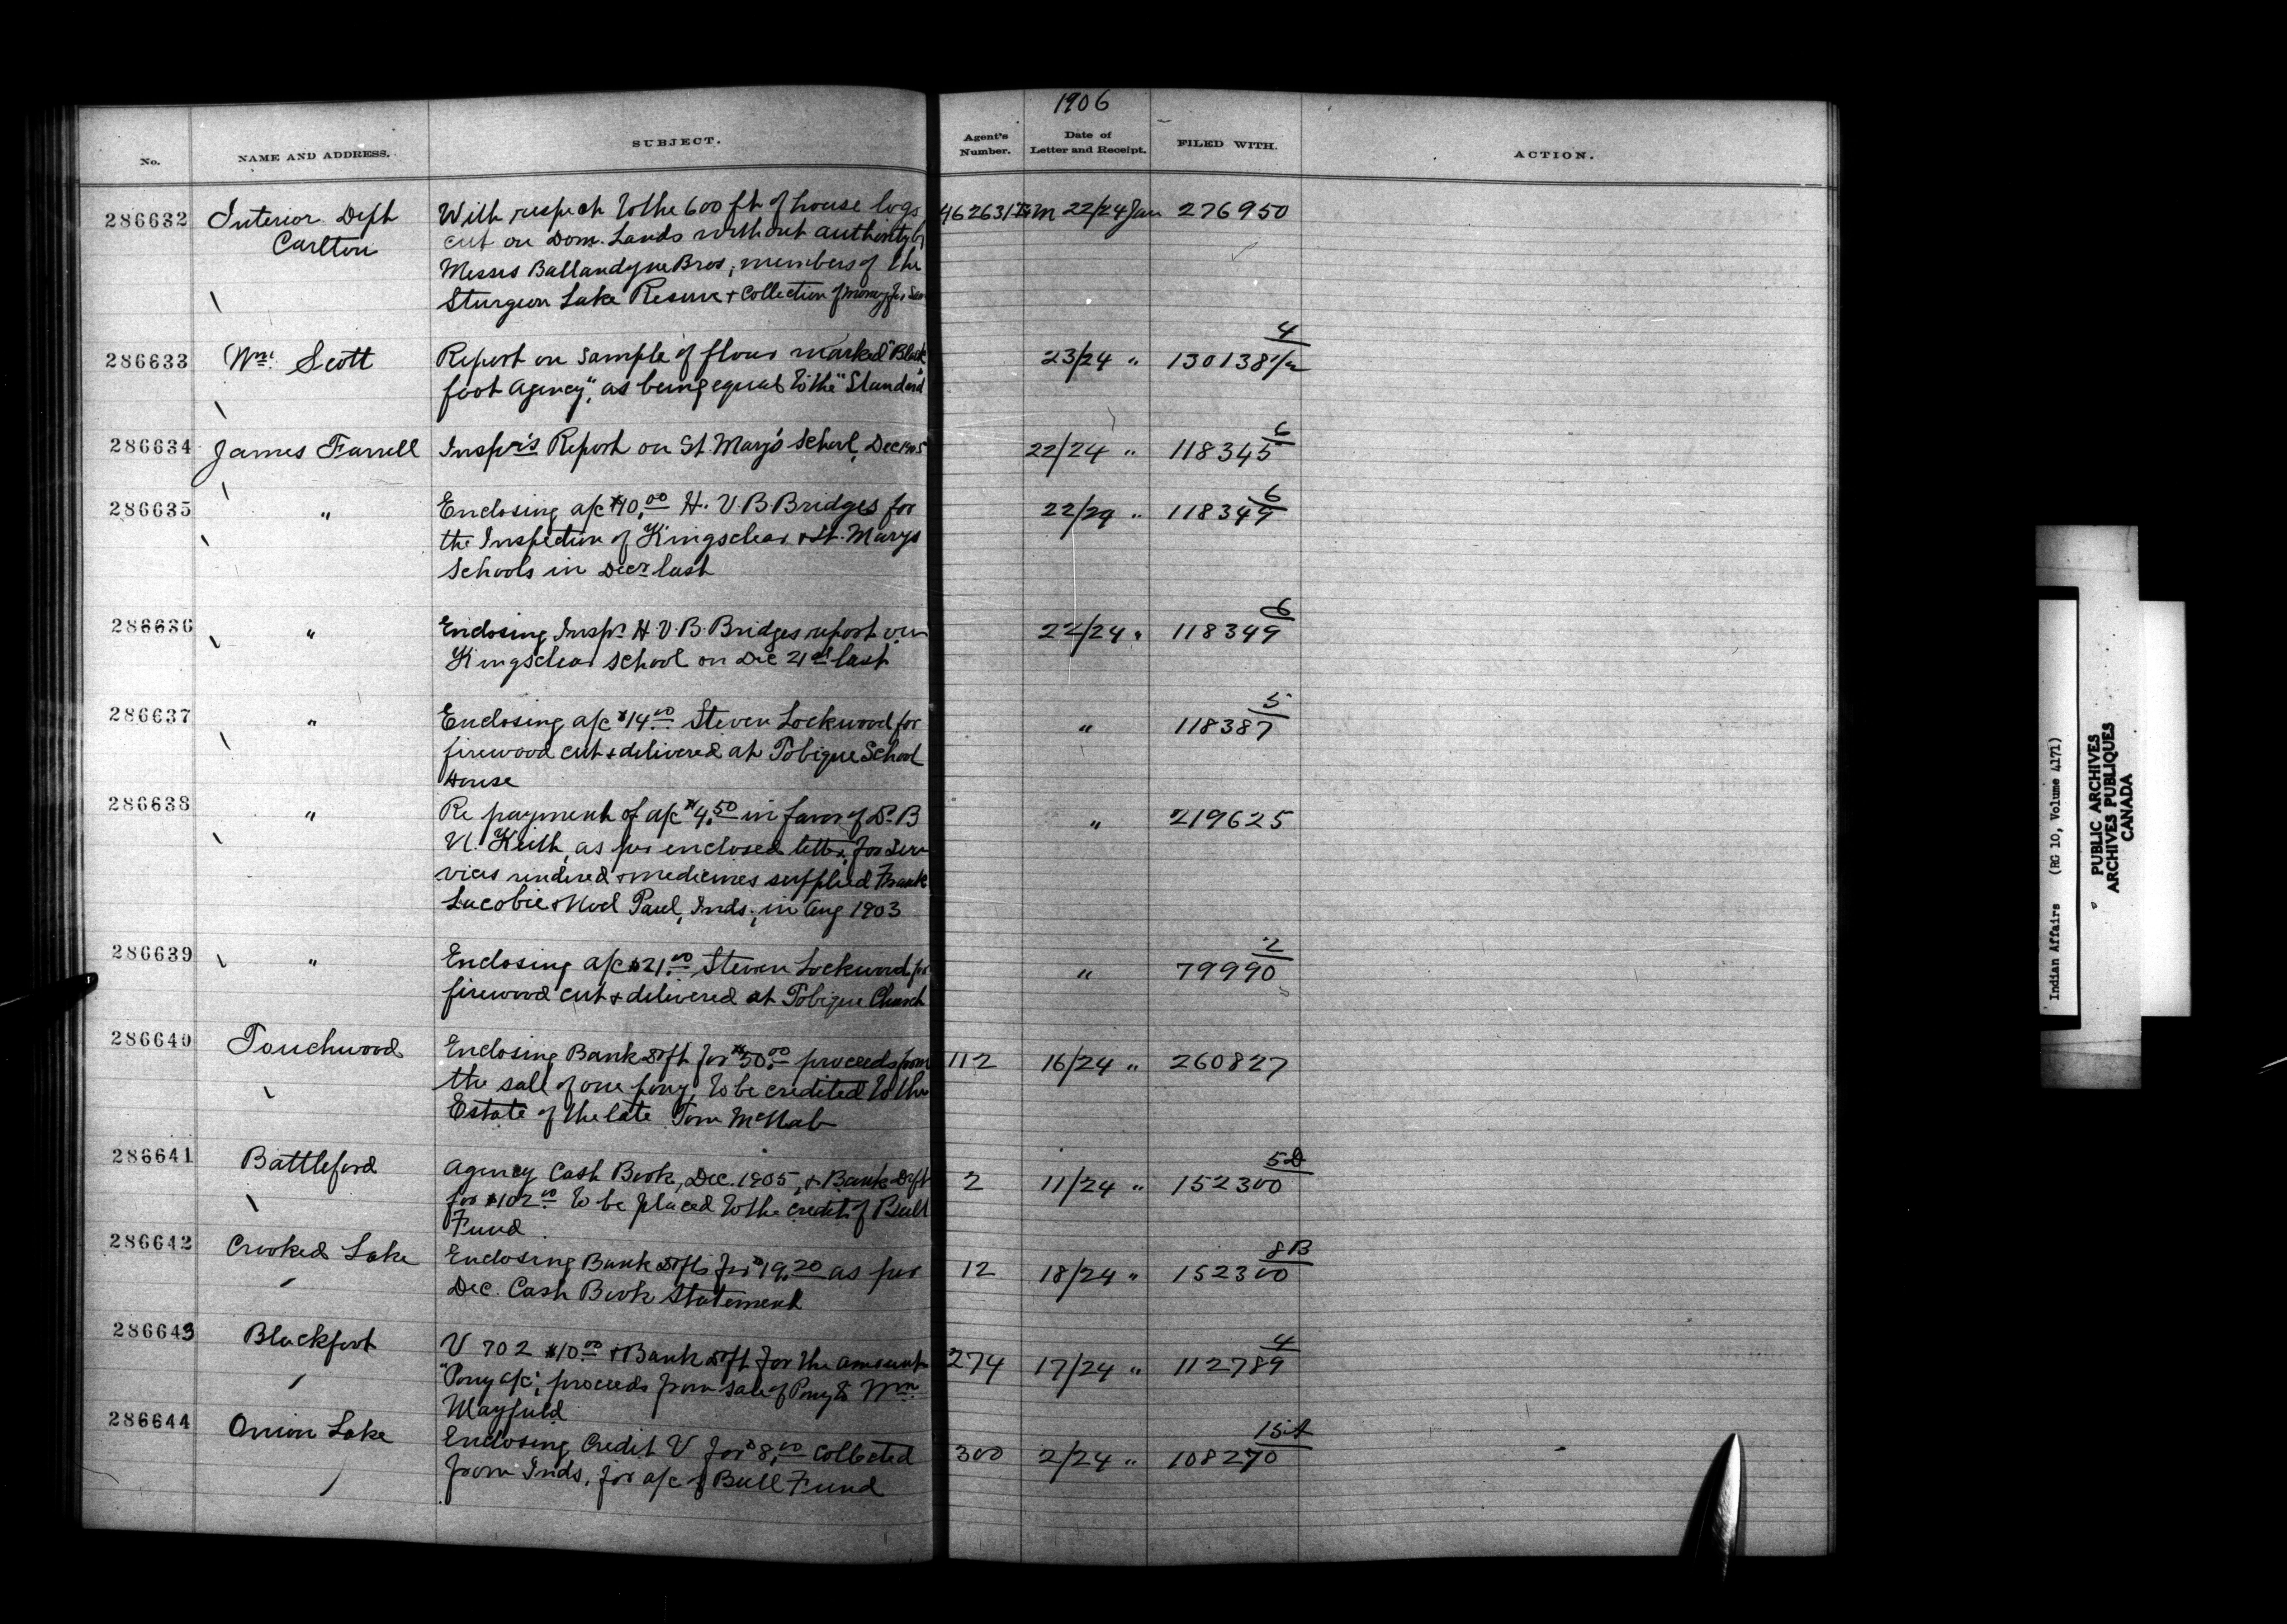 1906
No. NAME AND ADDRESS. SUBJECT. Agent's Number. Date of Letter and Receipt. FILED WITH. ACTION.
286632 Interior Dept With respect to the 600 ft of house logs 22/24 Jan 276950
Carlton cut on Dom. Lands without authority by
Messrs Ballandyne Bros, members of the
Sturgeon Lake Reserve & Collection of money for
4
286633 Wm. Scott Report on sample of flour marked "Black 23/24 " 130138 1/2
foot Agency", as being equal to the "Standard"
6
286634 James Farrell Inspr's Report on St. Mary's School, Dec 1905 22/24 " 118345
6
286635 " Enclosing a/c $40.00 H. V. B. Bridges for 22/24 " 118349
the Inspection of Kingsclear & St. Marys
Schools in Decr last
6
286636 " Enclosing Inspr. H. V. B. Bridges report on 22/24 " 118349
Kingsclear School on Dec 21st last
5
286637 " Enclosing a/c $14.00 Steven Lockwood for " 118387
firewood cut & delivered at Tobique School
House
286638 " Re payment of a/c $4.50 in favor of Dr. B " 219625
N. Keith, as per enclosed letter, for ser
vices rendered & medicines supplied Frank
Lacobie & Noel Paul, Inds., in Aug 1903
2
286639 " Enclosing a/c $21.00 Steven Lockwood for " 79990
firewood cut & delivered at Tobique Church
286640 Touchwood Enclosing Bank Dft for $50.00 proceeds from 112 16/24 " 260827
the sale of one pony, to be credited to the
Estate of the late Tom McNab
5D
286641 Battleford Agency Cash Book, Dec. 1905, & Bank Dft 2 11/24 " 152300
for $102.00 to be placed to the credit of Bull
Fund
8B
286642 Crooked Lake Enclosing Bank Dfts for $19.20 as per 12 18/24 " 152300
Dec. Cash Book Statement
4
286643 Blackfoot V 702 $10.00 & Bank Dft for the amount 274 17/24 " 112789
"Pony a/c", proceeds from sale of Pony to Wm
Mayfield
15A
286644 Onion Lake Enclosing Credit V for $8.00 collected 300 2/24 " 108270
from Inds, for a/c of Bull Fund
Indian Affairs (RG 10, Volume 4171)
PUBLIC ARCHIVES
ARCHIVES PUBLIQUES
CANADA